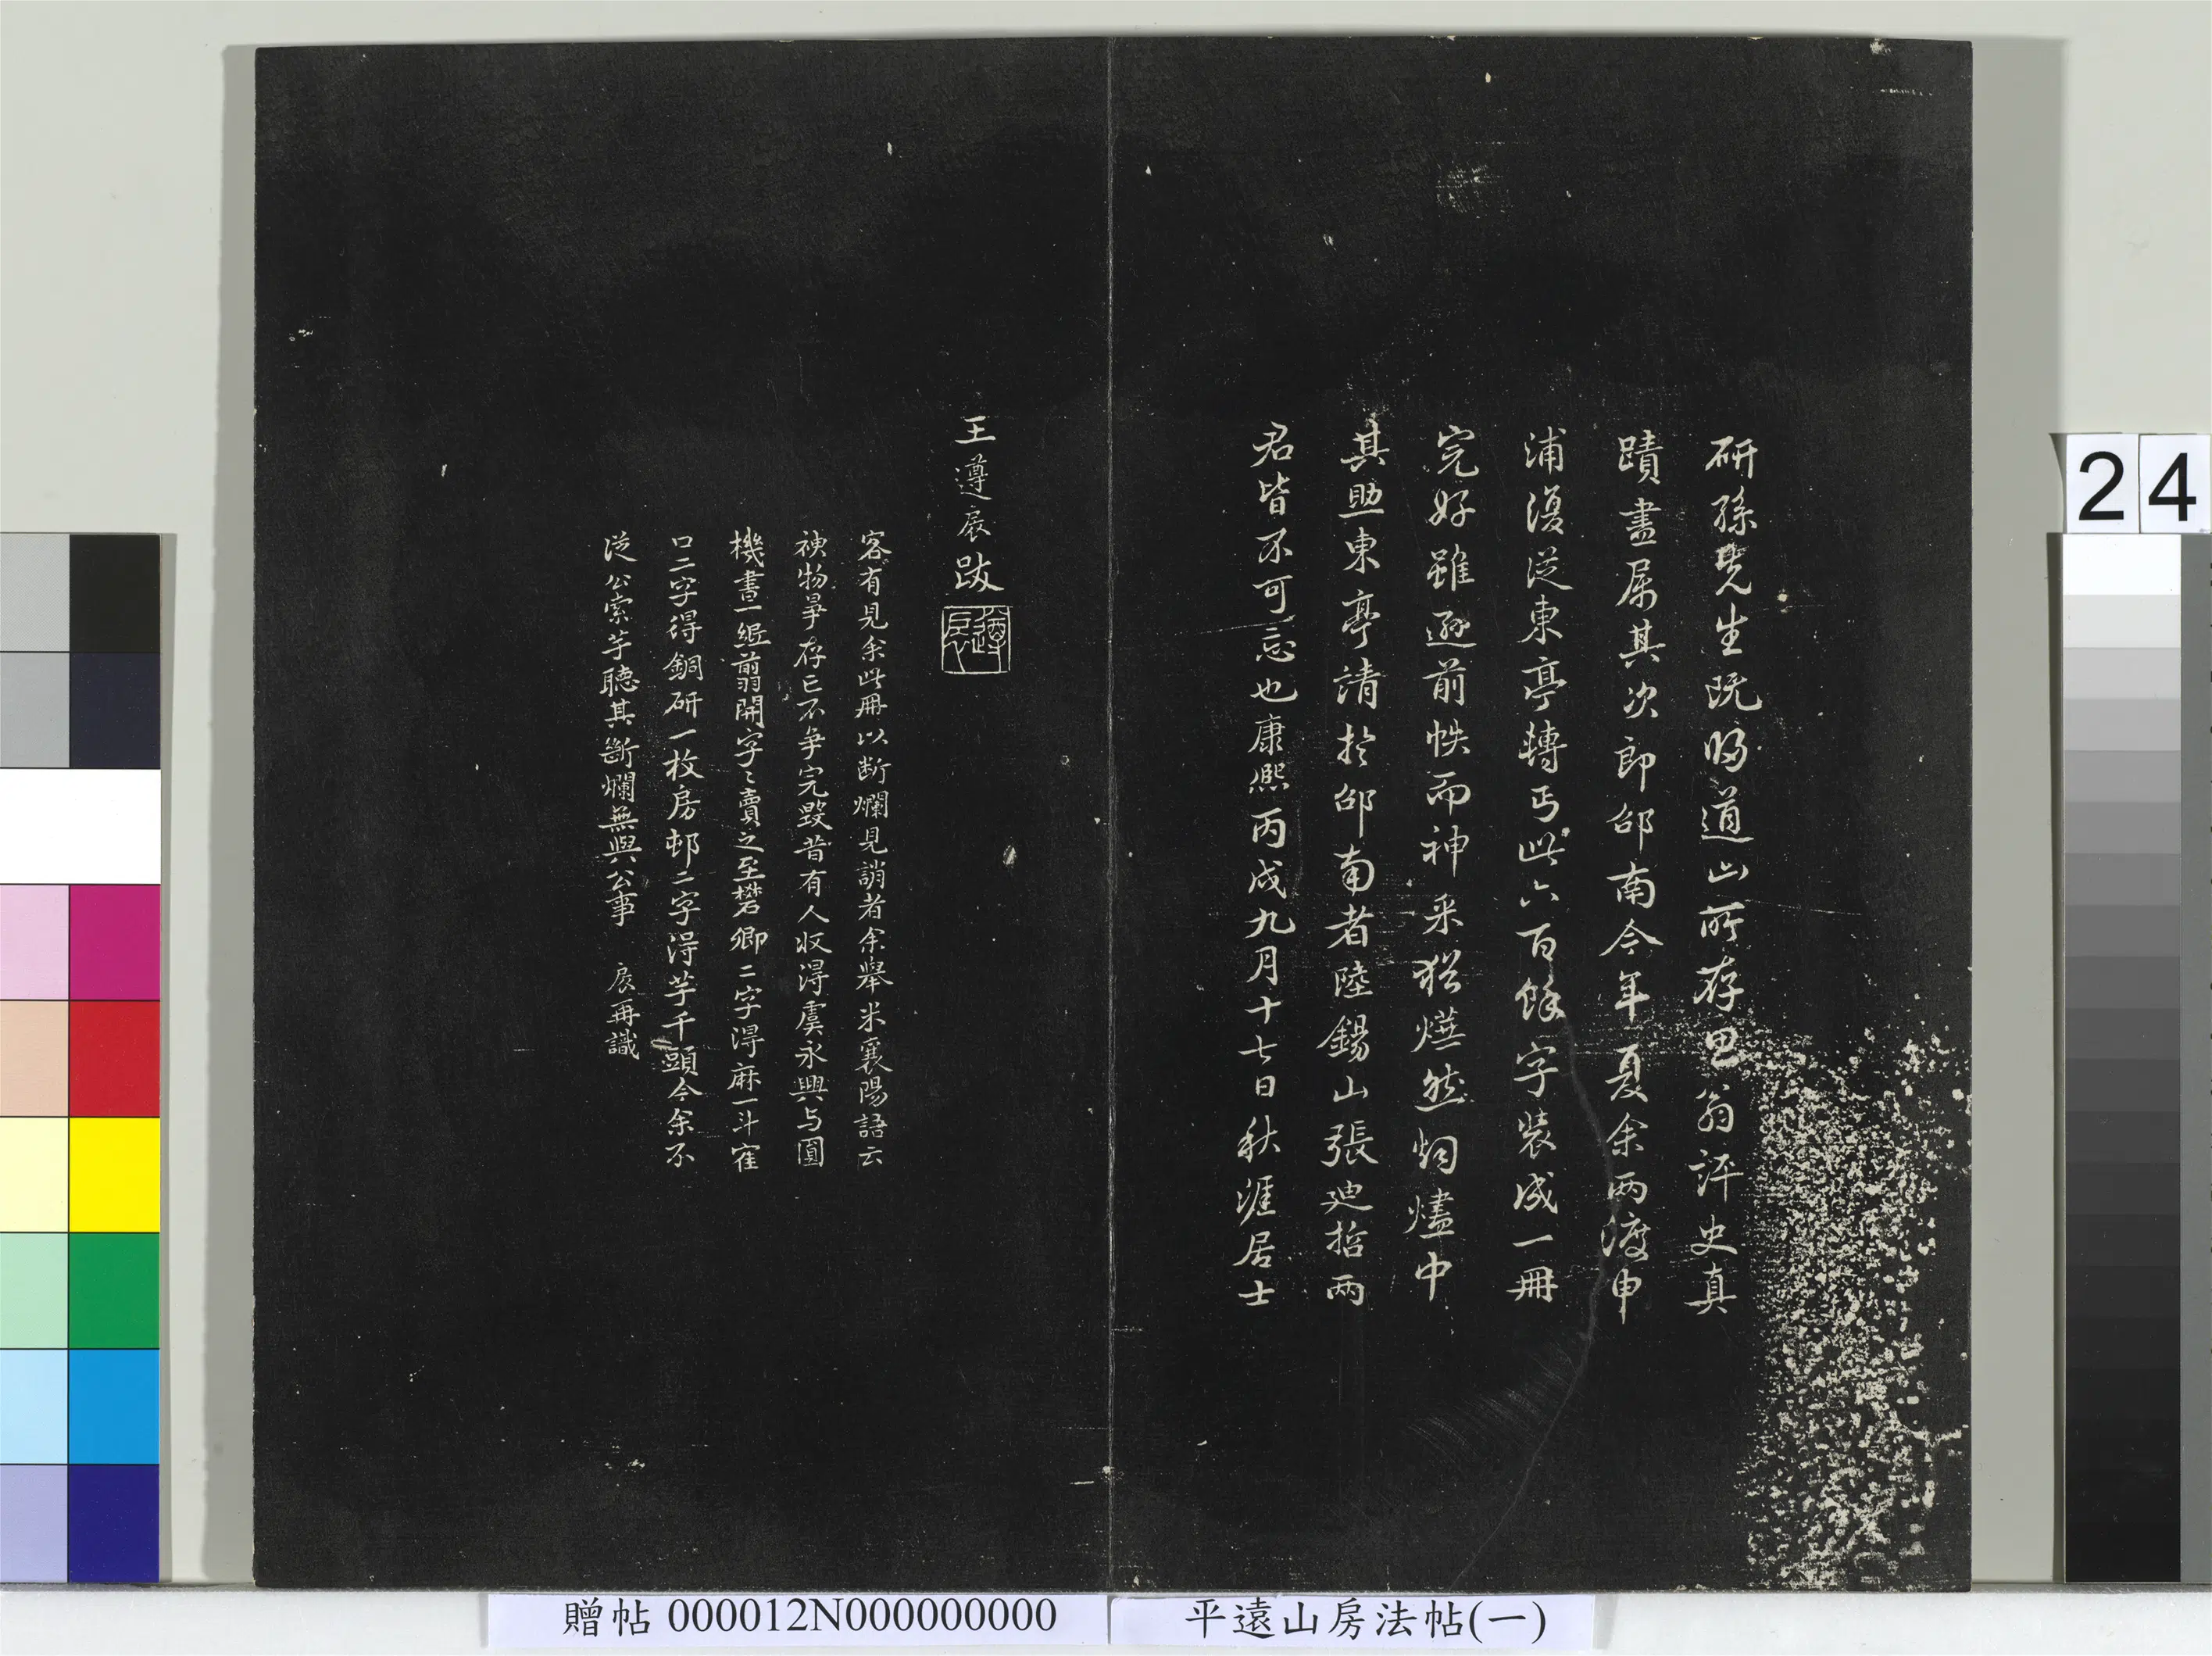 研孫先生既歸道山所存思翁評史真
蹟盡屬其次郎邰南今年夏余两渡申
浦復從東亭轉丐此六百餘字裝成一冊
完好雖遜前帙而神采猶燁然炯燼中
其與東亭請於邰南者陸錫山張廸哲两
君皆不可忘也康熙丙戌九月十七日秋涯居士
王遵扆跋
遵扆
客有見余此冊以断爛見誚者余舉米襄陽語云
神物㝵存已不争完毀昔有人収得虞永興与圓
機書一紙剪開字〻賣之至礬卿二字得麻一斗寉
口二字得銅研一枚房邨二字得芋千頭今余不
從公索芋聽其斷爛無與公事　扆再識
24
贈帖 000012N000000000
平遠山房法帖(一)